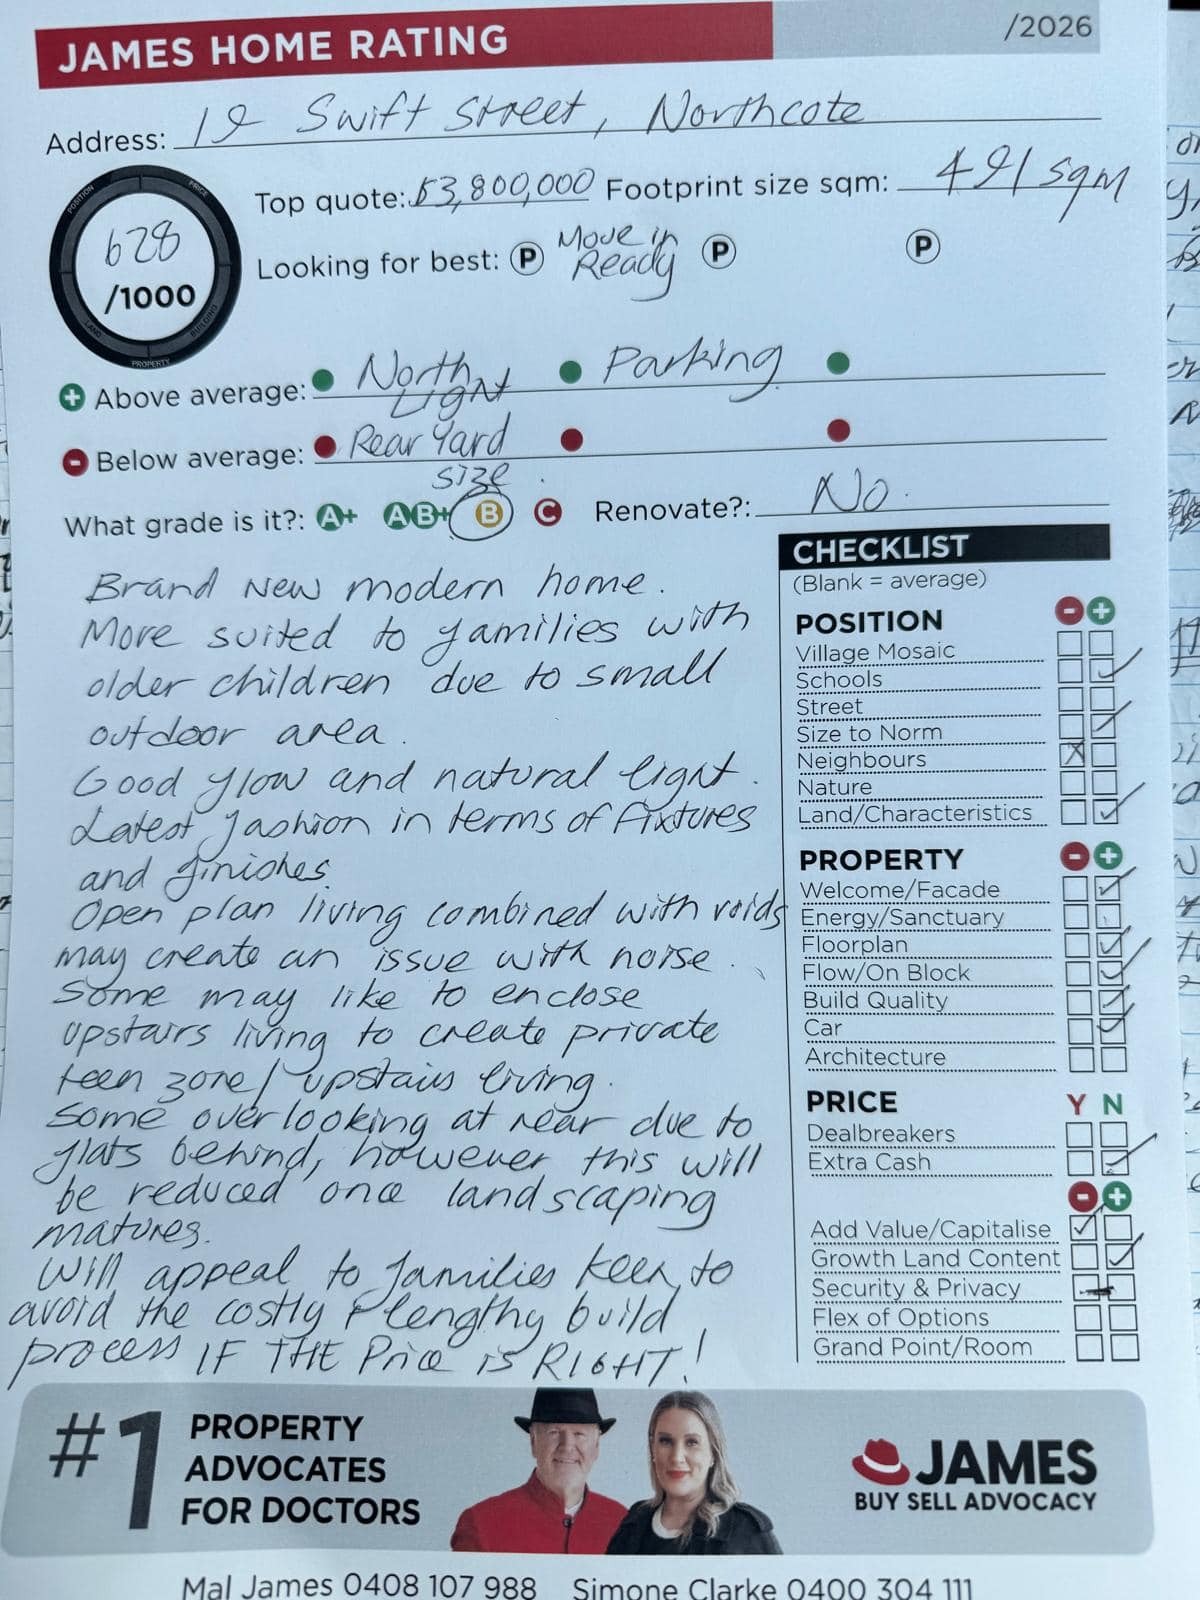 JAMES HOME RATING
/2026
Address: 19 Swift Street, Northcote
POSITION
PRICE
BUILDING
PROPERTY
LAND
628
/1000
Top quote: $3,800,000 Footprint size sqm: 491 sqm
Looking for best: P Move in Ready P P
Above average: North Light Parking
Below average: Rear Yard size
What grade is it?: A+ AB+ B C Renovate?: No
Brand New modern home.
More suited to families with
older children due to small
outdoor area.
Good flow and natural light.
Latest fashion in terms of fixtures
and finishes.
Open plan living combined with voids
may create an issue with noise.
Some may like to enclose
upstairs living to create private
teen zone/upstairs living.
Some overlooking at rear due to
flats behind, however this will
be reduced once landscaping
matures.
Will appeal to families keen to
avoid the costly + lengthy build
process IF THE Price is RIGHT!
CHECKLIST
(Blank = average)
POSITION - +
Village Mosaic
Schools
Street
Size to Norm
Neighbours
Nature
Land/Characteristics
PROPERTY - +
Welcome/Facade
Energy/Sanctuary
Floorplan
Flow/On Block
Build Quality
Car
Architecture
PRICE Y N
Dealbreakers
Extra Cash
- +
Add Value/Capitalise
Growth Land Content
Security & Privacy
Flex of Options
Grand Point/Room
#1 PROPERTY
ADVOCATES
FOR DOCTORS
JAMES
BUY SELL ADVOCACY
Mal James 0408 107 988 Simone Clarke 0400 304 111